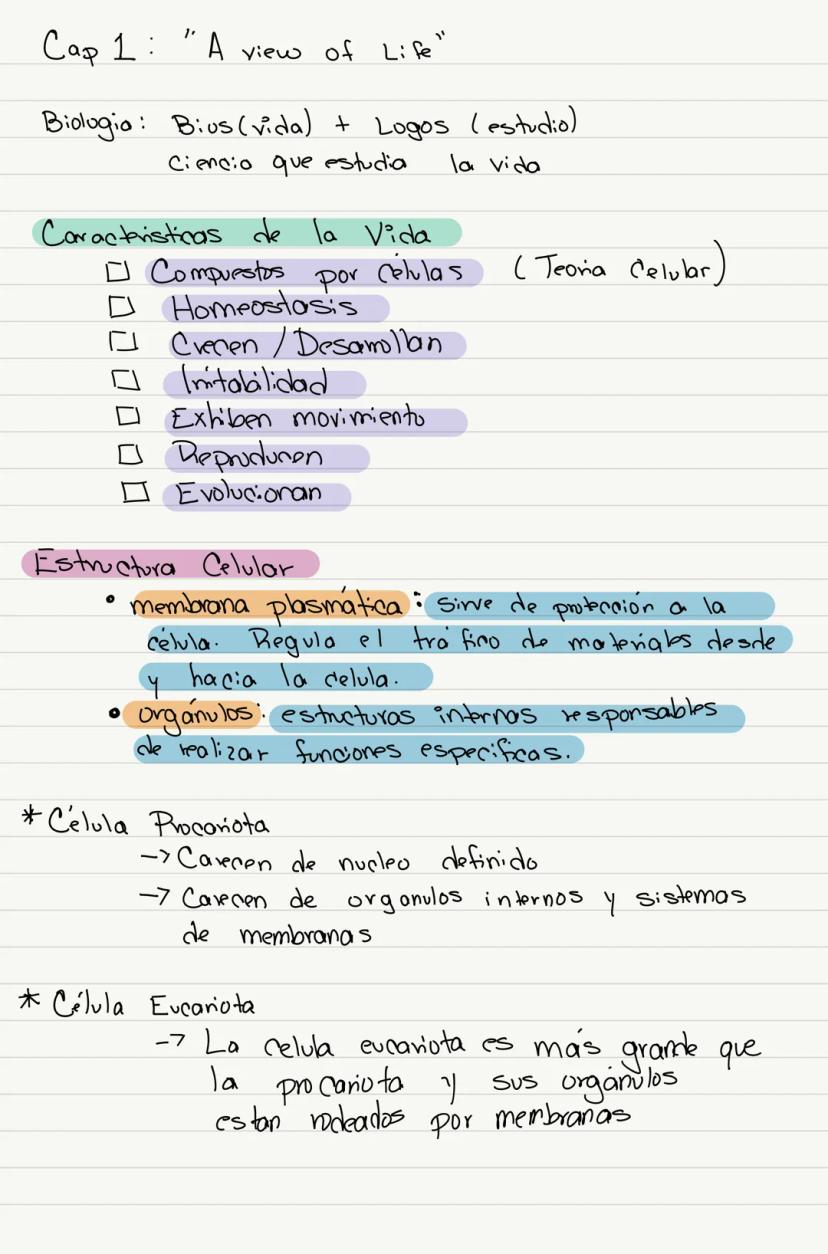 Cap 1: "A view of Life"
Biologia: Bios (vida) + Logos (estudio)
ciencia que estudia la vida
Caracteristicas de la Vida
☐ Compuestos por células (Teoria Celular)
☐ Homeostasis
☐ Crecen / Desarrollan
☐ Irritabilidad
☐ Exhiben movimiento
☐ Reproducen
☐ Evolucionan
Estructura Celular
• membrana plasmática: sirve de protección a la
célula. Regula el tráfico de materiales desde
y hacia la celula.
• orgánulos: estructuras internas responsables
de realizar funciones especificas.
* Célula Procariota
-> Carecen de nucleo definido
-> Carecen de organulos internos y sistemas
de membranas
* Célula Eucariota
-> La celula eucariota es más grande que
la procariota y sus orgánulos
estan rodeados por membranas